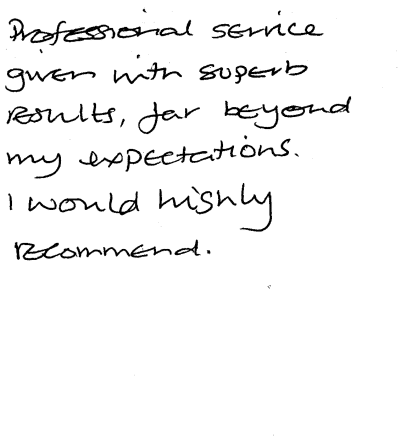 Professional service
given with superb
results, far beyond
my expectations.
I would highly
recommend.